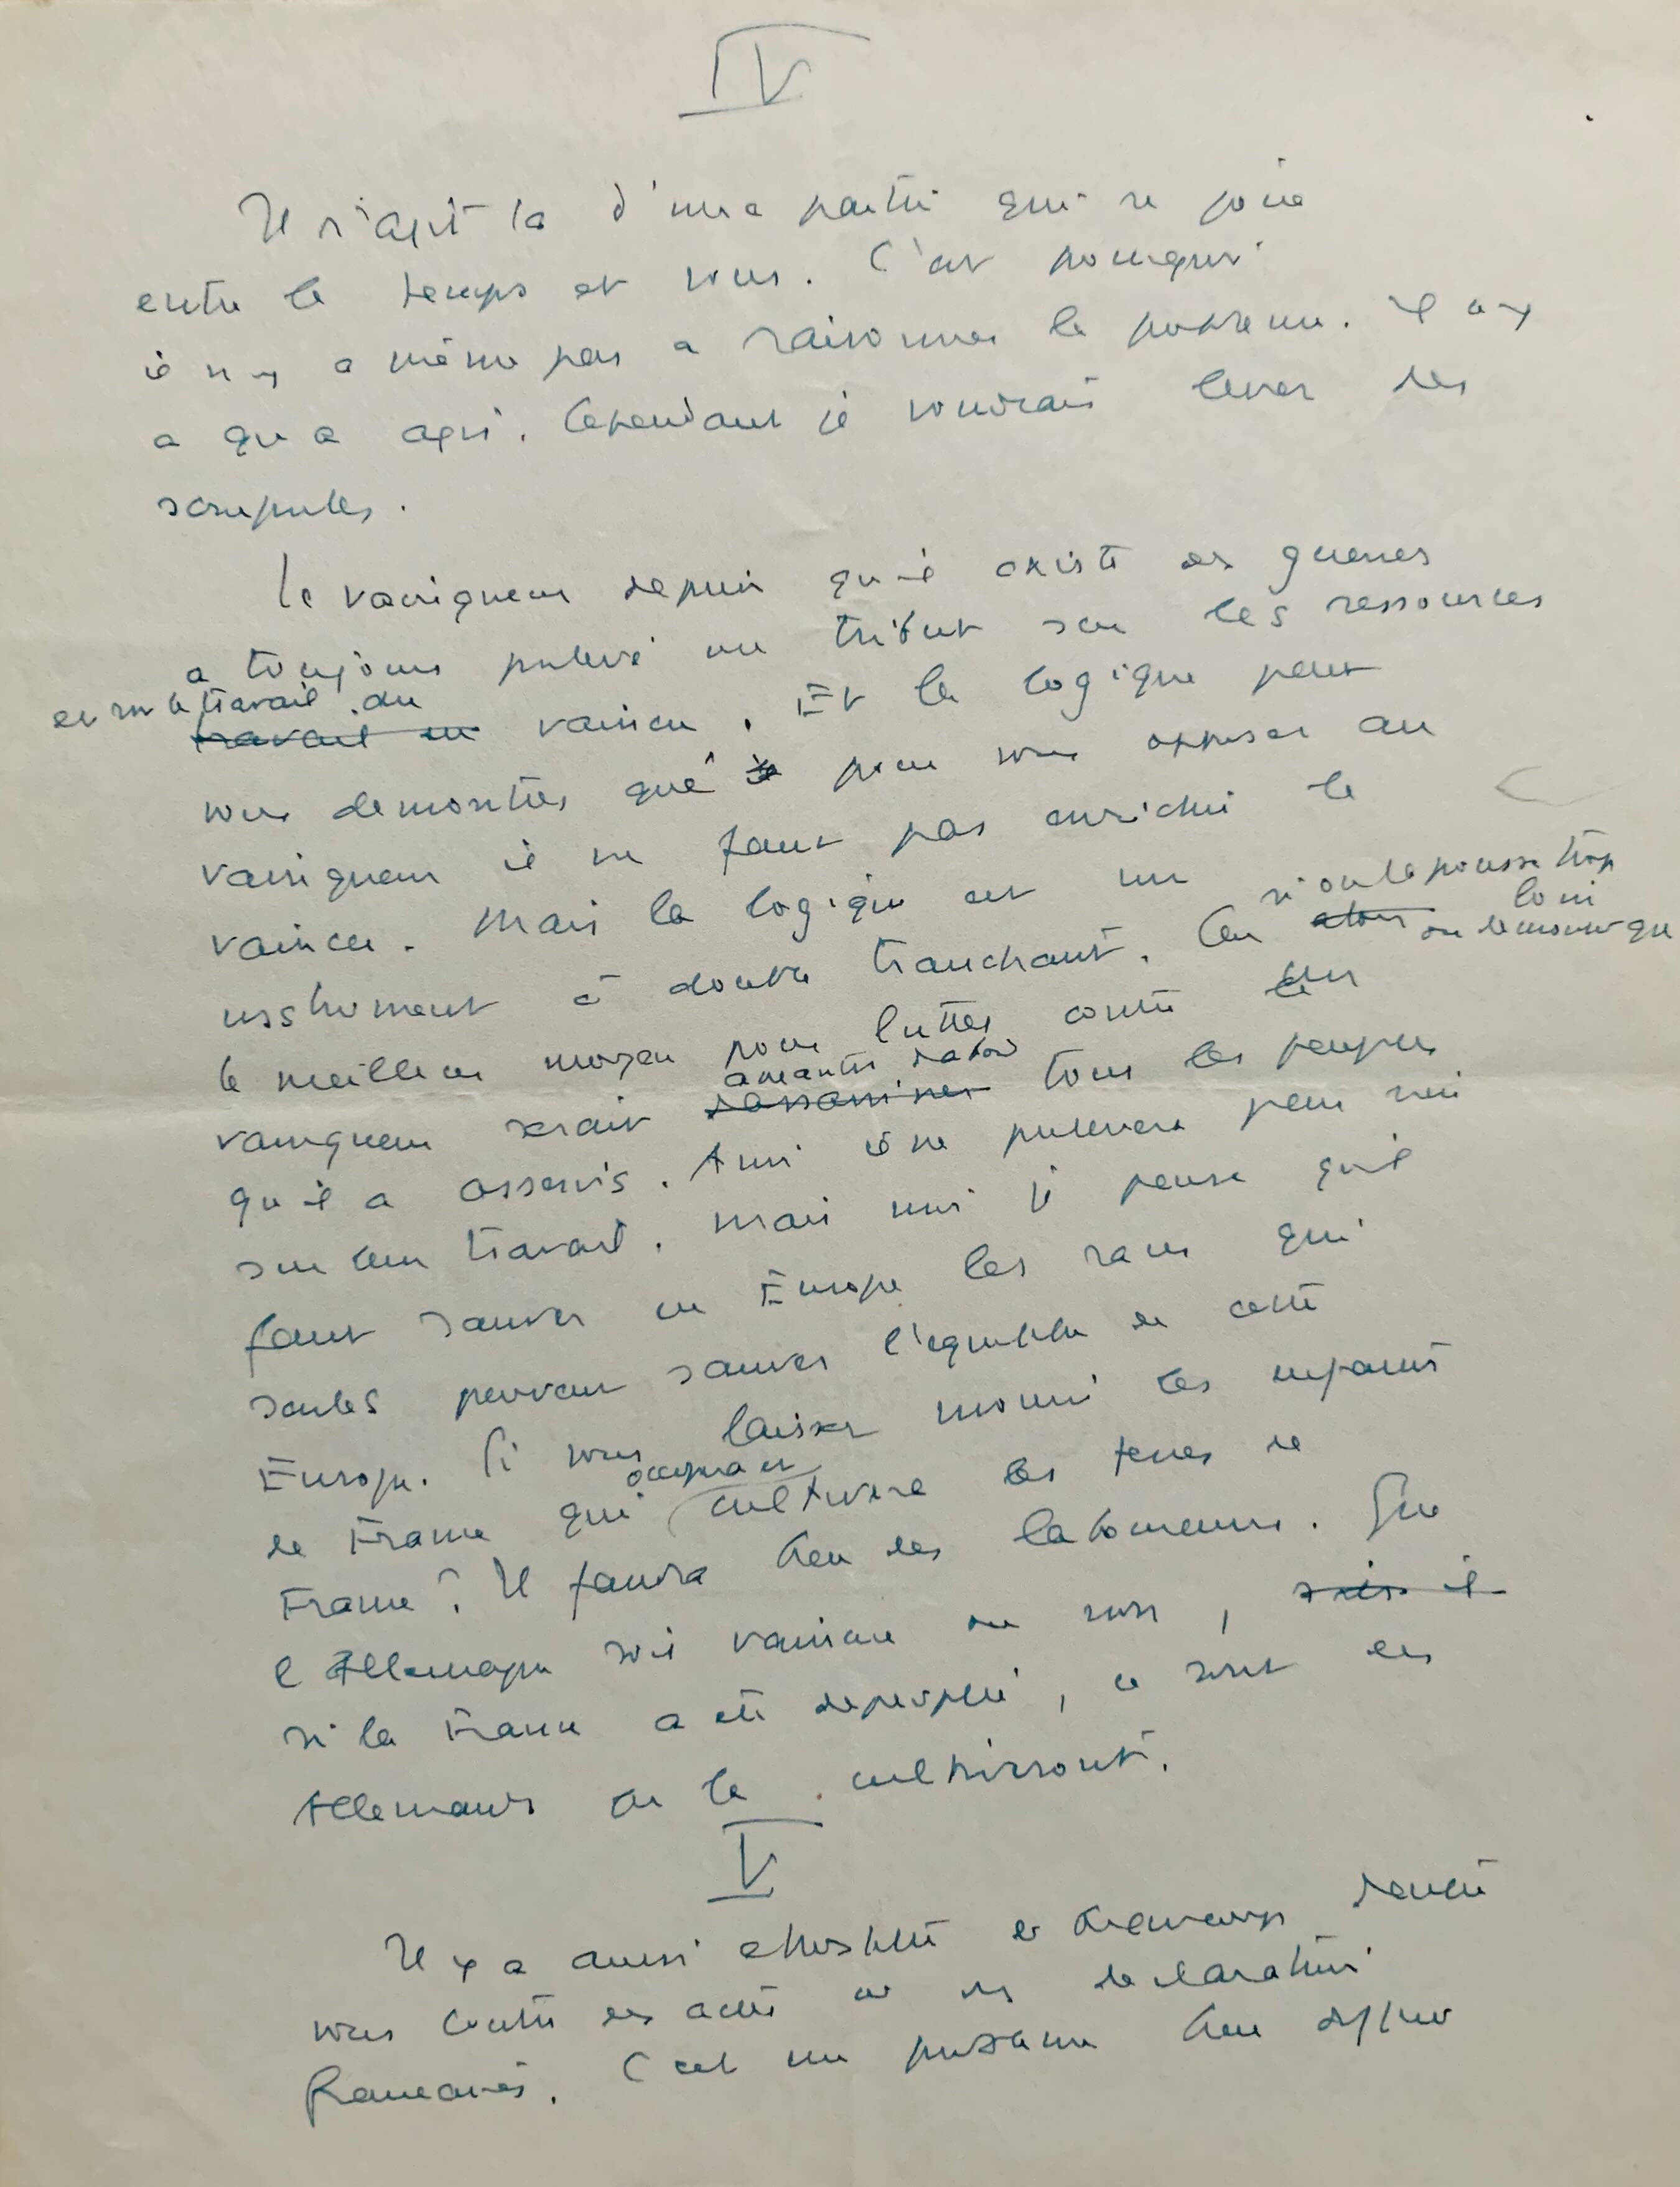 IV
Il s'agit là d'une partie qui se joue
entre le temps et vous. C'est pourquoi
il n y a même pas a raisonner le probleme. Il n y
a qu a agir. Cependant je voudrais lever des
scrupules.
Le vainqueur depuis qu il existe des guerres
a toujours prélevé un tribut sur les ressources
et sur le travail du
travail du vaincu. Et la logique peut
vous demontrer que pour vous opposer au
vainqueur il ne faut pas enrichir le
vaincu. Mais la logique est un
si on la pousse trop
loin
instrument à double tranchant. Car alors on demontre que
le meilleur moyen pour lutter contre un
aneantir d abord
vainqueur serait d assassiner tous les peuples
qu il a asservis. Ainsi il ne prelevera plus rien
sur leur travail. Mais moi je pense qu il
faut sauver en Europe les races qui
seules peuvent sauver l'equilibre de cette
Europe. Si vous laissez mourir les enfants
occupera et
de France qui cultivera les terres de
France? Il faudra bien des laboureurs. Que
l Allemagne soit vaincue ou non, soit il
si la France a ete depeuplée, ce sont des
Allemands qui la cultiveront.
V
Il y a aussi l hostilité de beaucoup d entre
vous contre des actes ou des declarations
francaises. C est un probleme bien different